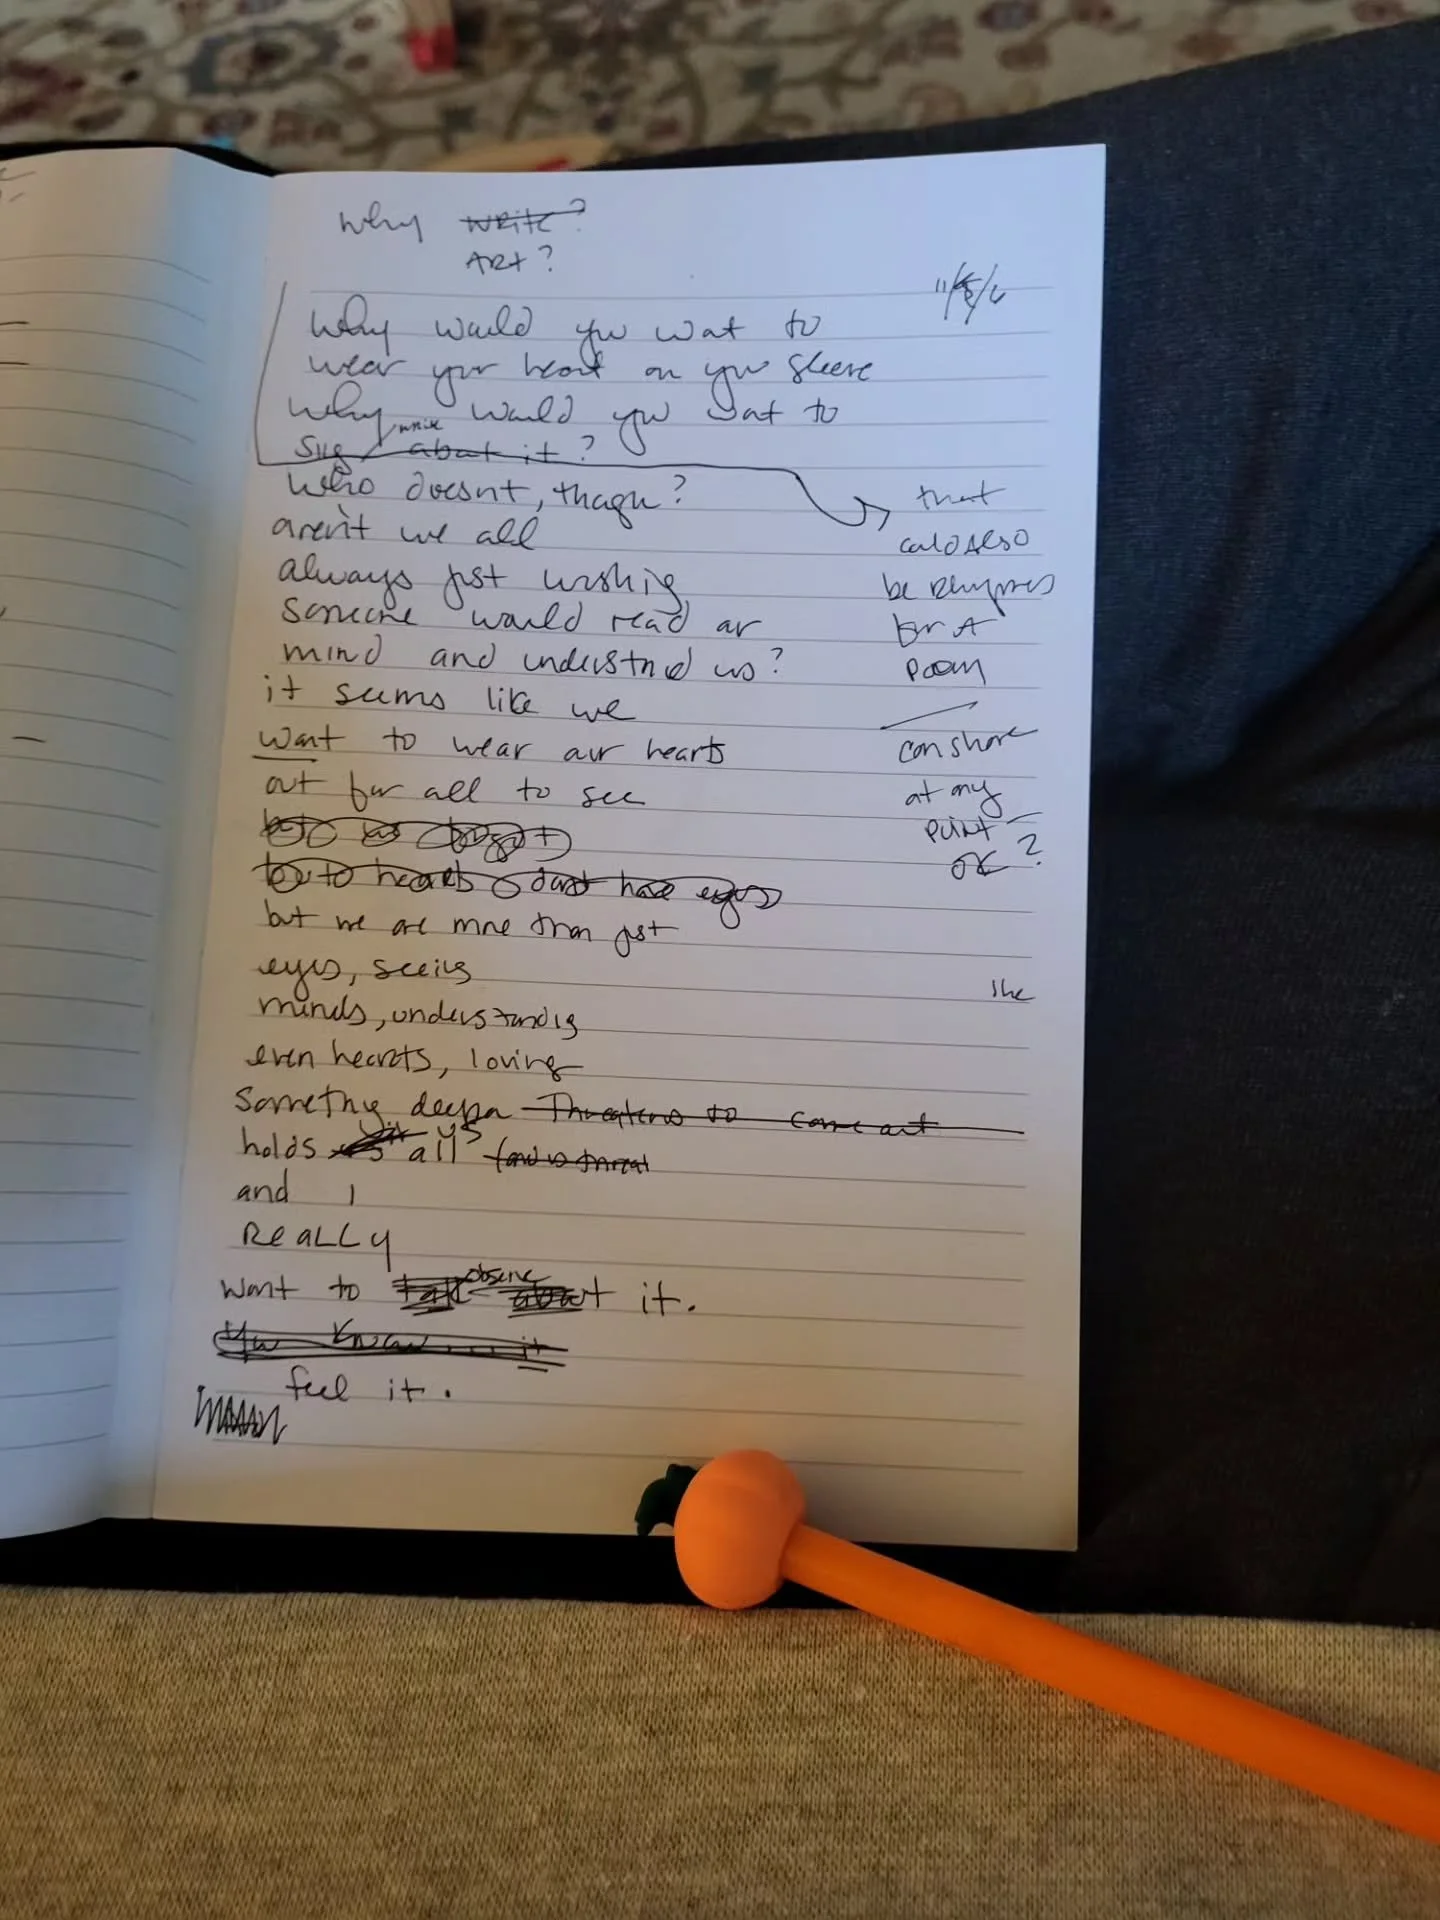 Why write?
ART?
Why would you want to
wear your heart on your sleeve
Why would you want to
write
sing about it?
Who doesn't, though?
aren't we all
always just wishing
someone would read our
mind and understand us?
it seems like we
want to wear our hearts
out for all to see
but we are more than just
eyes, seeing
minds, understanding
even hearts, loving
something deeper Threatens to come out
holds all
and I
REALLY
observe
want to talk about it.
You know... it
feel it.
that
could also
be
for a
poem
can share
at any
point
OK?
she